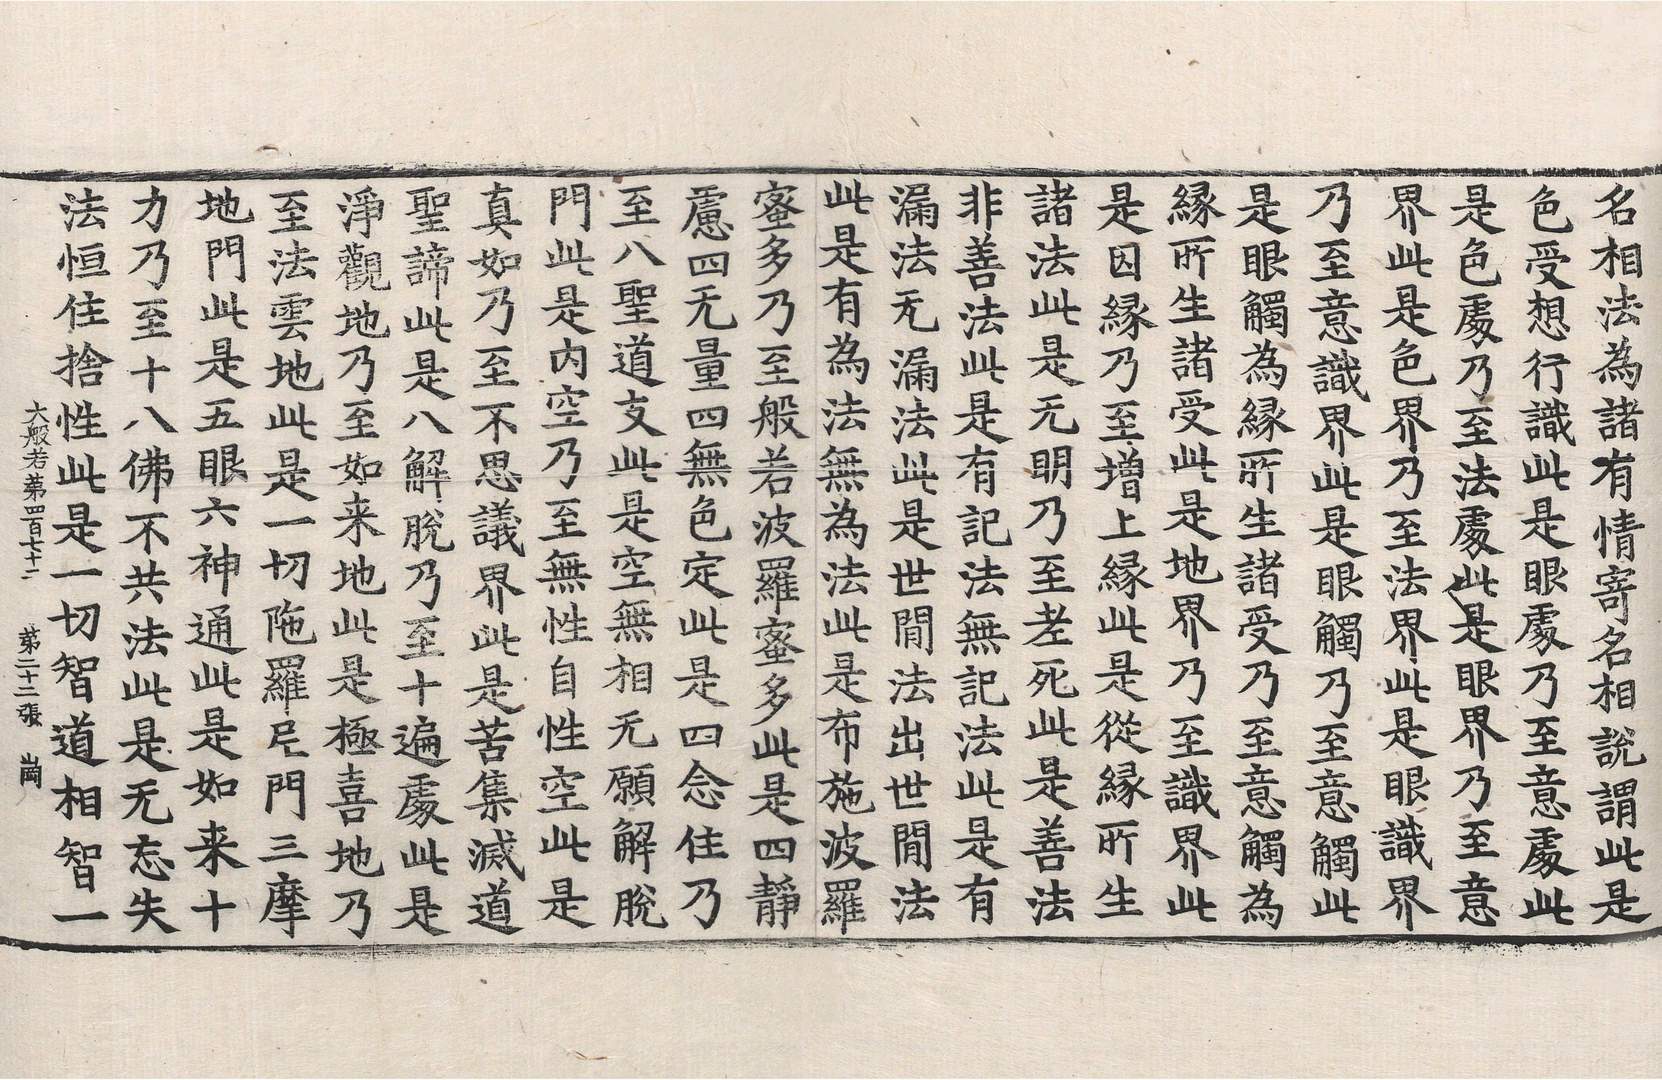 名相法為諸有情寄名相說謂此是
色受想行識此是眼處乃至意處此
是色處乃至法處此是眼界乃至意
界此是色界乃至法界此是眼識界
乃至意識界此是眼觸乃至意觸此
是眼觸為緣所生諸受乃至意觸為
緣所生諸受此是地界乃至識界此
是因緣乃至增上緣此是從緣所生
諸法此是无明乃至老死此是善法
非善法此是有記法無記法此是有
漏法无漏法此是世閒法出世閒法
此是有為法無為法此是布施波羅
蜜多乃至般若波羅蜜多此是四靜
慮四无量四無色定此是四念住乃
至八聖道支此是空無相无願解脫
門此是內空乃至無性自性空此是
真如乃至不思議界此是苦集滅道
聖諦此是八解脫乃至十遍處此是
淨觀地乃至如来地此是極喜地乃
至法雲地此是一切陁羅尼門三摩
地門此是五眼六神通此是如来十
力乃至十八佛不共法此是无忘失
法恒住捨性此是一切智道相智一
大般若第四百七十二 第二十二張 崗